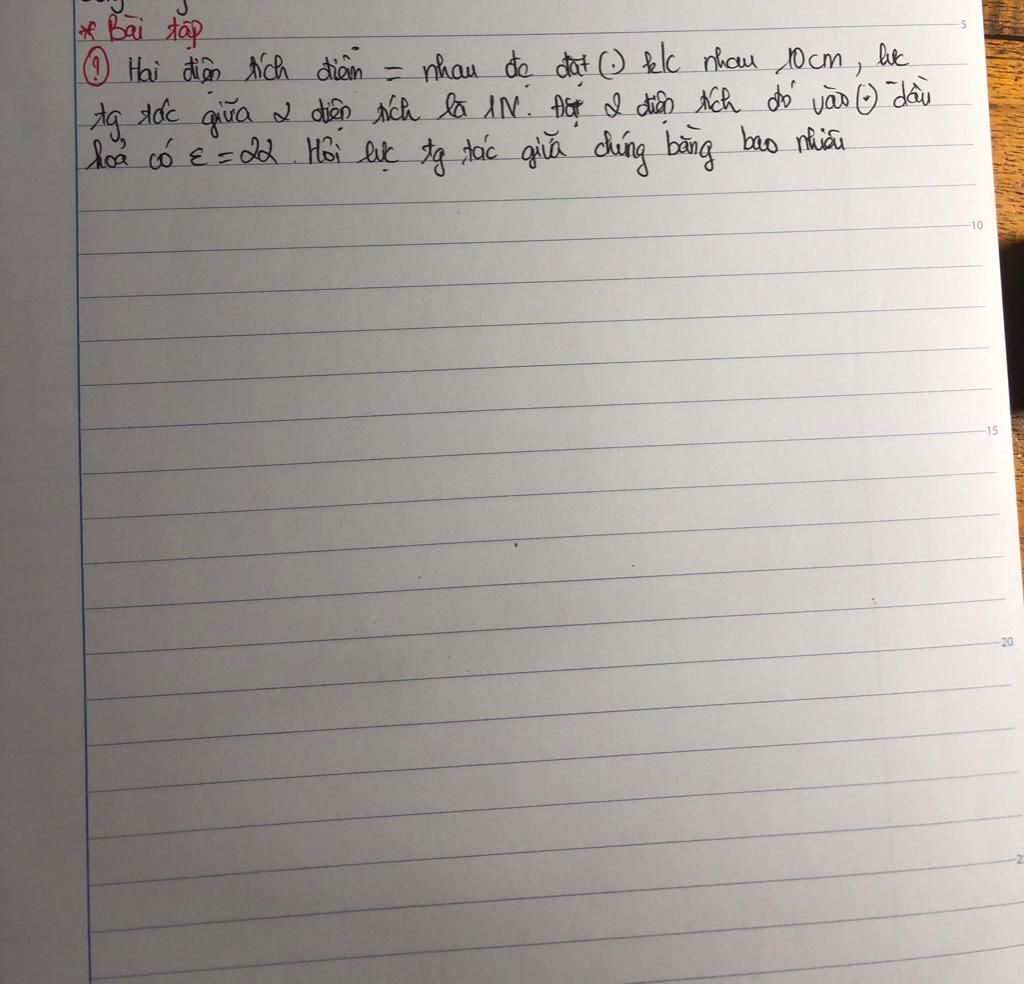 * Bài tập
① Hai điện tích điểm = nhau đc đặt (.) k/c nhau 10cm, lực
tg tác giữa 2 điện tích là 1N. Đặt 2 điện tích đó vào (.) dầu
hoả có ε = 22. Hỏi lực tg tác giữa chúng bằng bao nhiêu
5
10
15
20